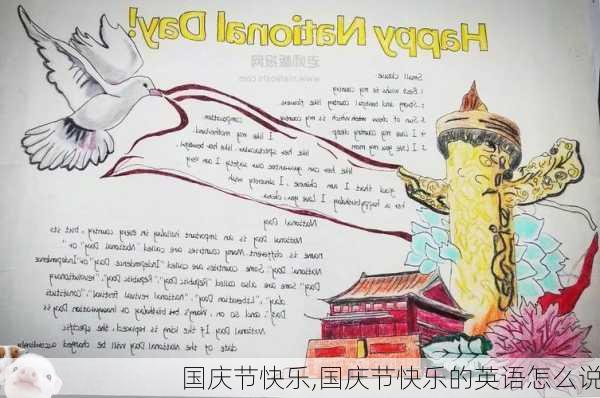 Happy National Day!
1. Best wishs to my country
2. Strong and beautiful country like flowers.
3. Sun at dawn which is my country
4. I Love my country deep
5. I Love you my mom
composition
I like my motherland.
like her spectacular
like her beautiful.
can guarantee our safety
glad that I am chinese, I sincerely wish
her a happybirthday I Love you, china.
National Day
National Day is an important holiday in every country, but its
name is different. Many countries are called "National Day" or "
National Day". Some countries are called "Independence Day" or "Independence
Day" Some are also called "Republic Day", "Republic Day", "revolutionary
day", "Liberation Day", "national renewal festival", "Constitution
Day" and so on. Many, but birthday or inauguration Day is
National Day. If the king is replaced, the specific
date of the National Day will be changed accordingly
国庆节快乐,国庆节快乐的英语怎么说